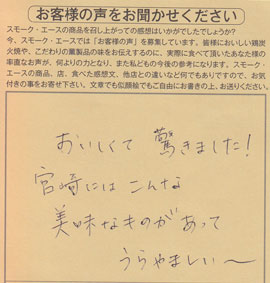 お客様の声をお聞かせください
スモーク・エースの商品を召し上がっての感想はいかがでしたでしょうか?
今、スモーク・エースでは「お客様の声」を募集しています。皆様においしい鶏炭
火焼や、こだわりの薫製品の味をお伝えするのに、実際に食べて頂いたあなた様の
率直なお声が、何よりの力となり、また私どもの今後の参考になります。スモーク・
エースの商品、店、食べた感想文、他店との違いなど何でもありですので、お気
付きの事をお寄せ下さい。文章でも似顔絵でもご自由にお書きの上、お送りください。
おいしくて 驚きました!
宮崎には こんな
美味なものがあって
うらやましい〜